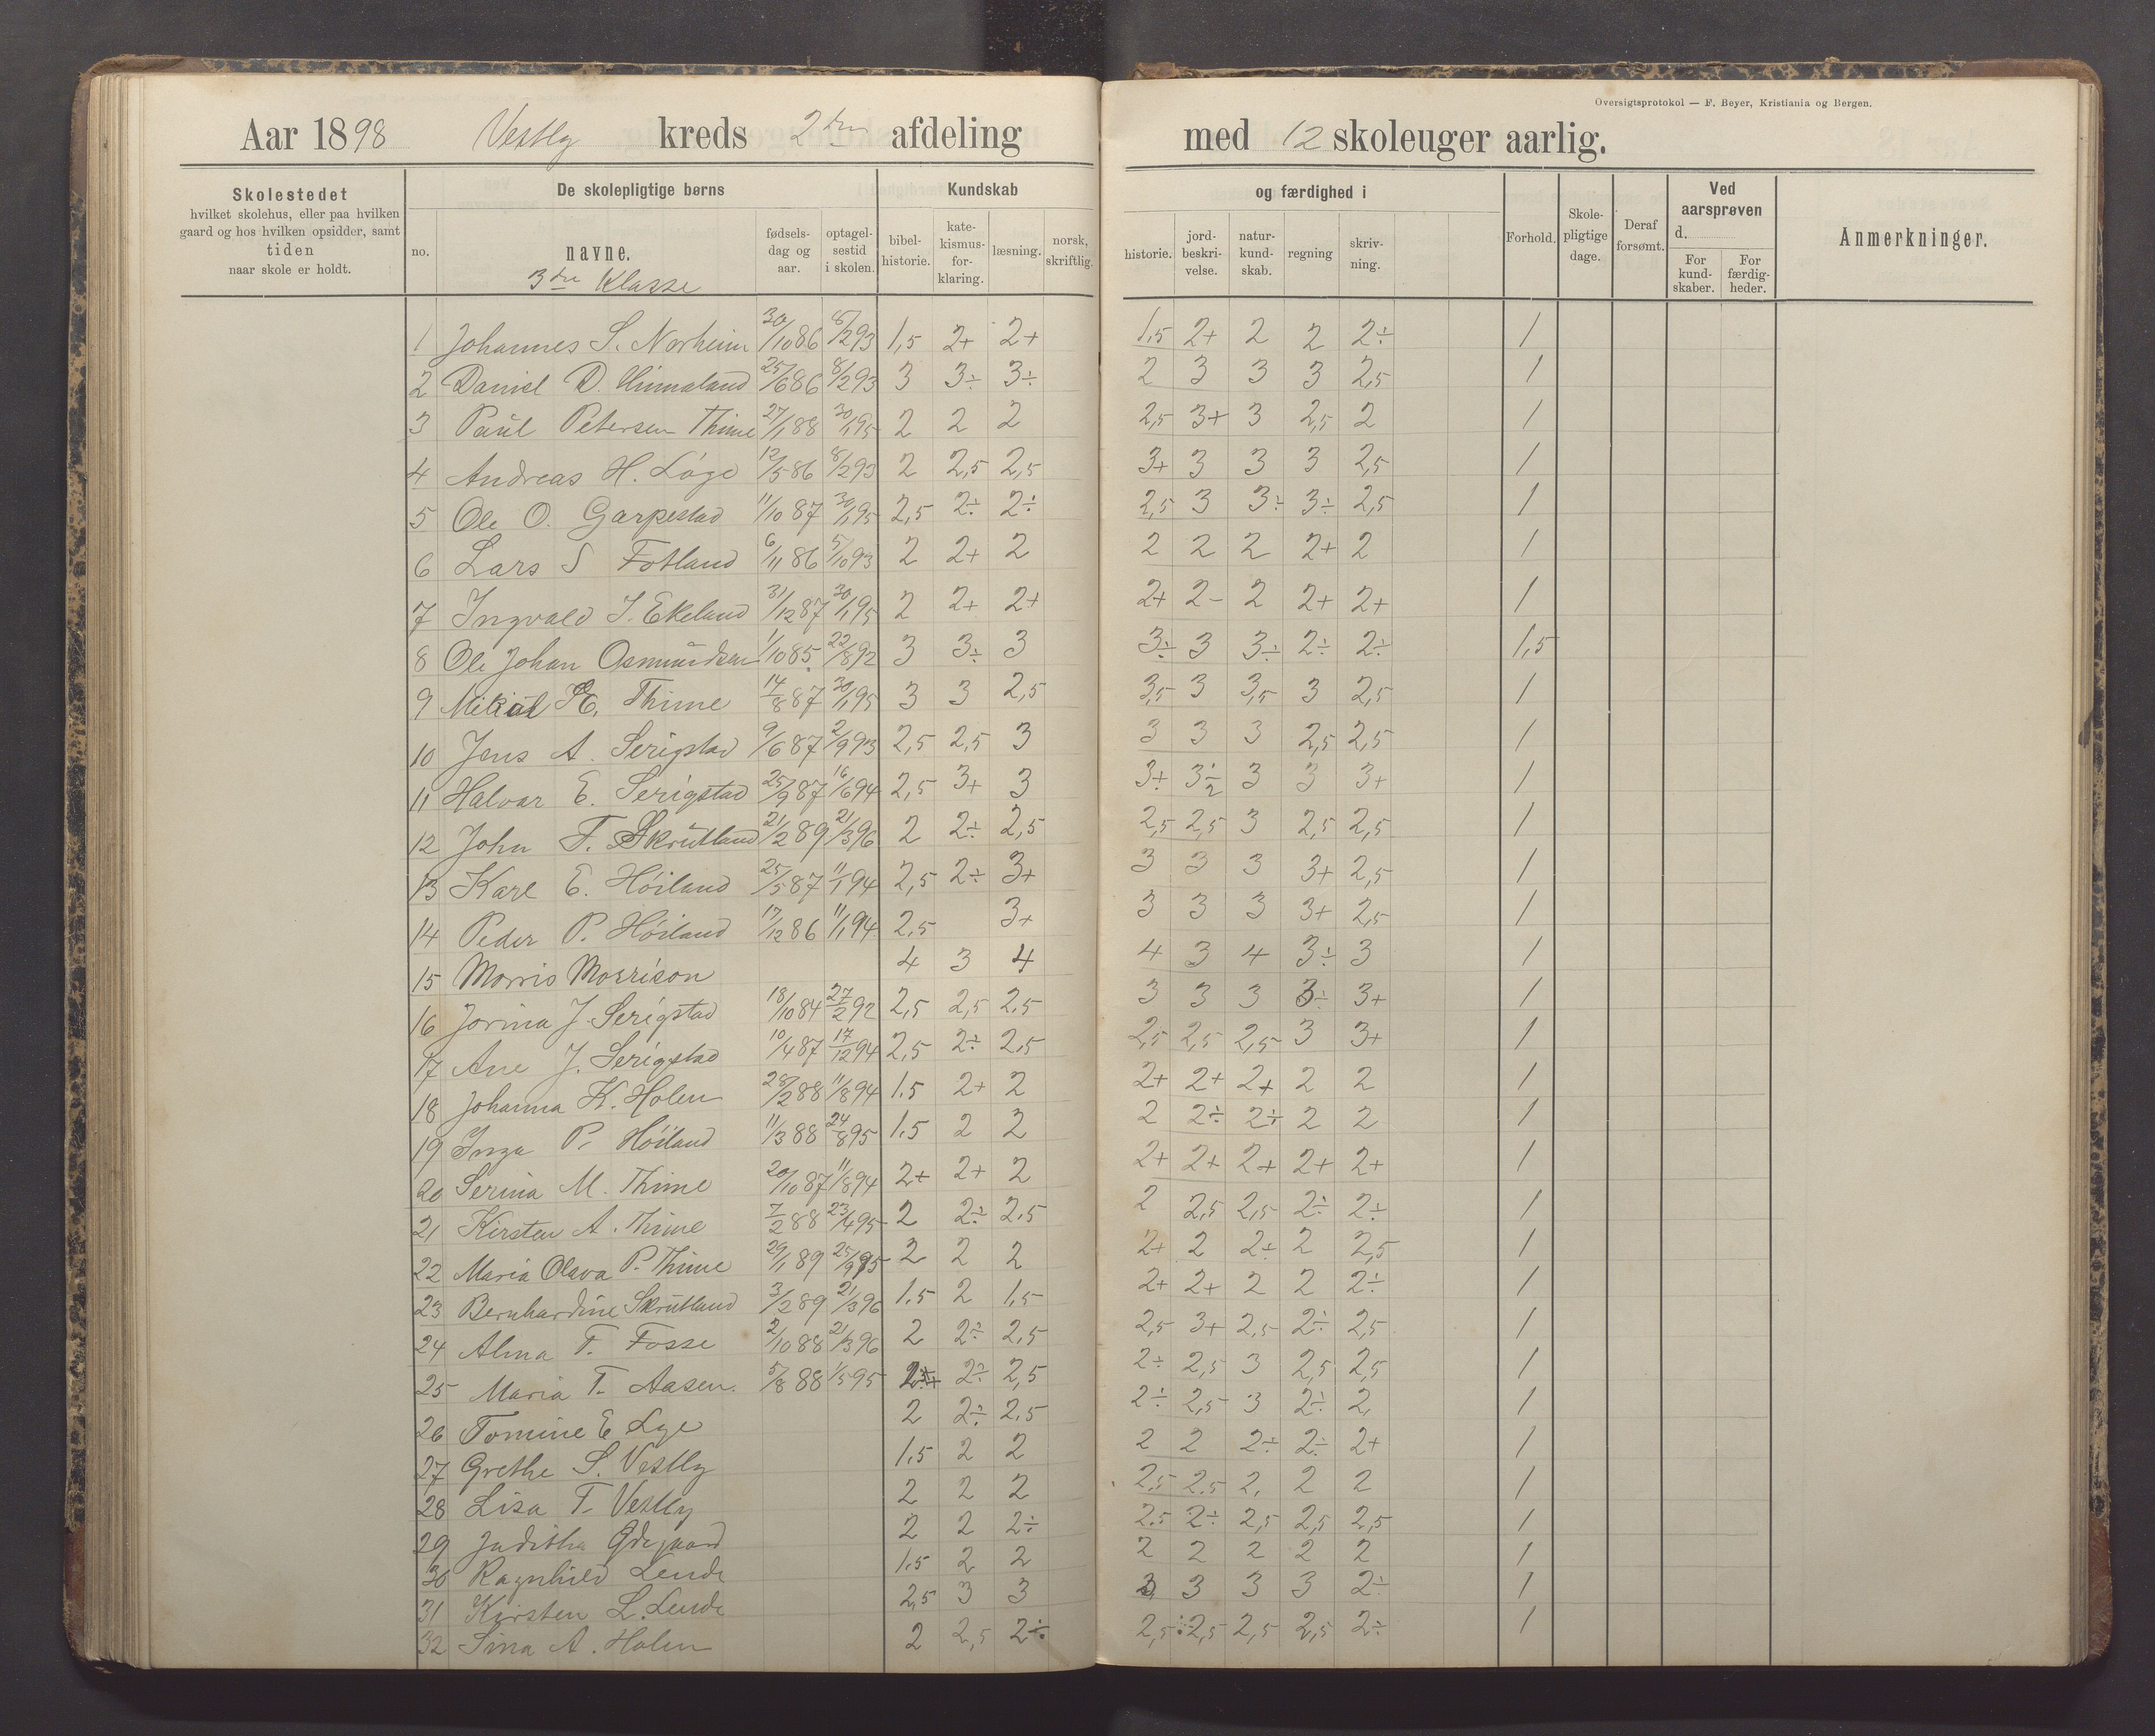 Oversigtsprotokol — F. Beyer, Kristiania og Bergen.
Aar 1898 Vestly kreds 2den afdeling med 12 skoleuger aarlig.
Skolestedet
hvilket skolehus, eller paa hvilken
gaard og hos hvilken opsidder, samt
tiden
naar skole er holdt.
De skolepligtige børns
no.
navne.
3die Klasse
fødsels-
dag og
aar.
optagel-
sestid
i skolen.
Kundskab
bibel-
historie.
kate-
kismus-
for-
klaring.
læsning.
norsk,
skriftlig.
og færdighed i
historie.
jord-
beskri-
velse.
natur-
kund-
skab.
regning
skriv-
ning.
Forhold.
Skole-
pligtige
dage.
Deraf
forsømt.
Ved
aarsprøven
d.
For
kund-
skaber.
For
færdig-
heder.
Anmerkninger.
1 Johannes S. Norheim 30/10 86 8/2 93 1,5 2+ 2+ 1,5 2+ 2 2 2÷ 1
2 Daniel D. Hinnaland 25/6 86 8/2 93 3 3÷ 3÷ 2 3 3 3 2,5 1
3 Paul Petersen Thime 27/1 88 30/1 95 2 2 2 2,5 3+ 3 2,5 2 1
4 Andreas H. Løge 12/5 86 8/2 93 2 2,5 2,5 3+ 3 3 3 2,5 1
5 Ole O. Garpestad 11/10 87 30/1 95 2,5 2÷ 2÷ 2,5 3 3÷ 3÷ 2,5 1
6 Lars S Fotland 6/11 86 5/10 93 2 2+ 2 2 2 2 2+ 2 1
7 Ingvald J. Ekeland 31/12 87 30/1 95 2 2+ 2+ 2+ 2- 2 2+ 2+ 1
8 Ole Johan Osmundsen 1/10 85. 22/8 92 3 3÷ 3 3÷ 3 3÷ 2÷ 2÷ 1,5
9 Mikal E. Thime 14/8 87 30/1 95 3 3 2,5 3,5 3 3,5 3 2,5 1
10 Jens A. Serigstad 9/6 87 2/9 93 2,5 2,5 3 3 3 3 2,5 2,5 1
11 Halvar E. Serigstad 25/9 87 16/6 94 2,5 3+ 3 3+ 3÷ 3 3 3+ 1
12 John T. Skrutland 21/2 89 21/3 96 2 2÷ 2,5 2,5 2,5 3 2,5 2,5 1
13 Karl E. Höiland 25/5 87 11/1 94 2,5 2÷ 3+ 3 3 3 3+ 2,5 1
14 Peder P. Höiland 17/12 86 11/1 94 2,5 3+ 3 3 3 3+ 2,5 1
15 Morris Morrison 4 3 4 4 3 4 3÷ 3 1
16 Jorina J. Serigstad 18/10 84 27/2 92 2,5 2,5 2.5 3 3 3 3÷ 3+ 1
17 Ane J. Serigstad 10/4 87 17/12 94 2,5 2÷ 2,5 2,5 2,5 2,5 3 3+ 1
18 Johanna K. Holen 28/2 88 11/8 94 1.5 2+ 2 2+ 2+ 2+ 2 2 1
19 Inga P. Höiland 11/3 88 24/8 95 1.5 2 2 2 2÷ 2÷ 2 2 1
20 Serina M. Thime 20/10 87 11/8 94 2+ 2+ 2 2+ 2+ 2+ 2+ 2+ 1
21 Kirsten A. Thime 7/2 88 23/4 95 2 2÷ 2.5 2 2,5 2,5 2÷ 2÷ 1
22 Maria Olava P. Thime 29/1 89 25/9 95 2 2 2 2+ 2 2÷ 2 2,5 1
23 Bernhardine Skrutland 3/2 89 21/3 96 1.5 2 1,5 2+ 2+ 2 2 2÷ 1
24 Alma T. Fosse 2/10 88 21/3 96 2 2÷ 2,5 2,5 3+ 2,5 2÷ 2,5 1
25 Maria T. Aasen. 5/8 88 1/5 95 2÷ 2,5 2÷ 2,5 3 2,5 2,5 1
26 Tomine E Lge 2 2÷ 2.5 2÷ 2,5 3 2÷ 2 1
27 Grethe S. Vestly 1.5 2 2 2 2 2÷ 2÷ 2+ 1
28 Lisa T. Vestly 2 2 2 2.5 2.5 2. 2 2 1
29 Juditha 2 2 2÷ 2.5 2÷ 2,5 2,5 2,5 1
30 Ragnhild Lende 1.5 2 2 2 2 2 2 2 1
31 Kirsten L. Lende 2,5 3 3 3 3 3 2÷ 1
32 Sina A. Holen 2 2,5 2÷ 2,5÷ 2,5 2,5 2,5 2÷ 1